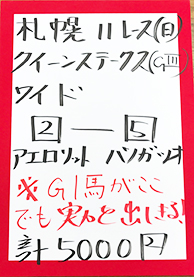 札幌11レース(日)
クイーンステークス(GIII)
ワイド
2 — 5
アエロリット パノガッセオ
※GI馬がここ
でも実力と出しきる!
計5000円